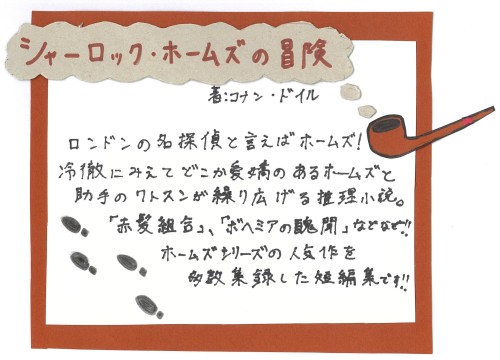 シャーロック・ホームズの冒険
著:コナン・ドイル
ロンドンの名探偵と言えばホームズ!
冷徹にみえてどこか愛嬌のあるホームズと
助手のワトスンが繰り広げる推理小説。
「赤髪組合」、「ボヘミアの醜聞」などなど!!
ホームズシリーズの人気作を
多数集録した短編集です!!